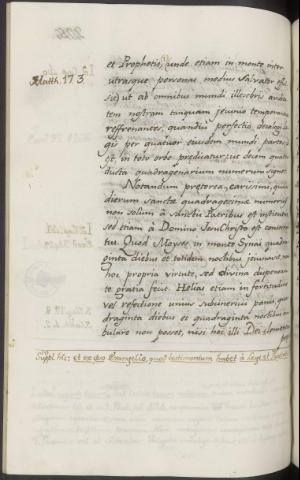 Matth. 17.3
et Prophetis, unde etiam in monte inter
utrasque personas medius Salvator
sit ut ab omnibus mundi illecebris
tem nostram tanquam jejunio temporanea
reffrenantes, quandiu perfectio decalogi le-
gis per quatuor ejusdem mundi partes
est, in toto orbe praedicatur, ut decem quater
ducta quadragenarium numerum signet.
Notandum praeterea, carissimi, quia
dierum sanctae quadragesimae numerus
non solum à Sanctis Patribus est
sed etiam à Domino Jesu Christo est consecra-
tus. Quod Moyses in monte Synai quadra-
ginta diebus et totidem noctibus jejunavit, non
hoc propria virtute, sed divina
te gratia fecit. Helias etiam in fortitudine
vel refectione unius subcinericii panis, qua-
draginta diebus et quadraginta noctibus am-
bulare non posset, nisi hoc illi Dei clementia
Suppl. hic: et ex ipso Evangelio, quod testimonium habet à Lege et Prophetis